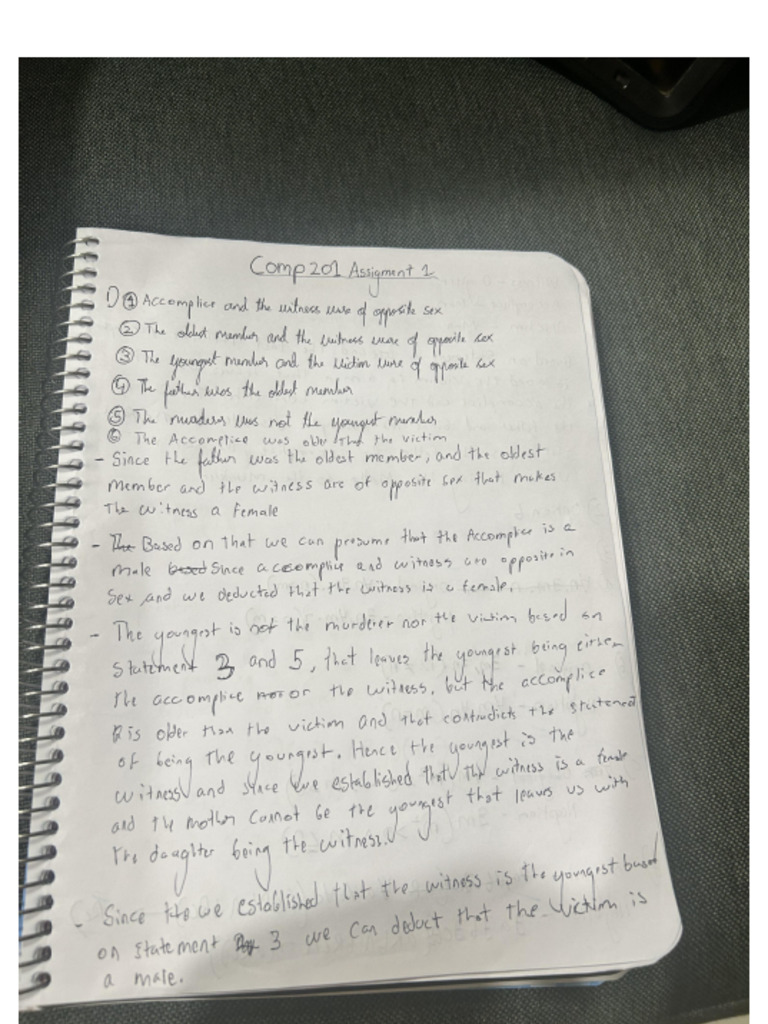 Comp201 Assigment 1
1) ① Accomplice and the witness were of opposite sex
② The oldest member and the witness were of opposite sex
③ The youngest member and the victim were of opposite sex
④ The father was the oldest member
⑤ The murderer was not the youngest member
⑥ The Accomplice was older that the victim
- Since the father was the oldest member, and the oldest
member and the witness are of opposite sex that makes
The witness a female
- The Based on that we can presume that the Accomplice is a
male based since accomplice and witness are opposite in
sex, and we deducted that the witness is a female.
- The youngest is not the murderer nor the victim based on
statement 3 and 5, that leaves the youngest being either
the accomplice or the witness, but the accomplice
is older than the victim and that contradicts the statement
of being the youngest. Hence the youngest is the
witness and since we established that the witness is a female
and the mother cannot be the youngest that leaves us with
the daughter being the witness.
- Since we established that the witness is the youngest based
on statement 3 we can deduct that the victim is
a male.